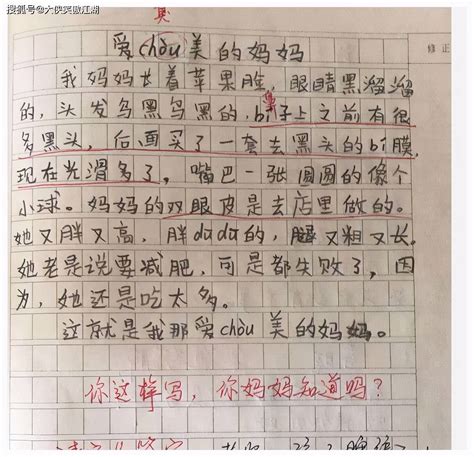 搜狐号@大侠笑傲江湖
臭
修正
爱chòu美的妈妈
我妈妈长着苹果脸，眼睛黑溜溜
的，头发乌黑乌黑的，bí子上之前有很
鼻
多黑头，后面买了一套去黑头的bí膜，
现在光滑多了，嘴巴一张圆圆的像个
小球。妈妈的双眼皮是去店里做的。
她又胖又高，胖dūdū的，腿又粗又长。
她老是说要减肥，可是都失败了，因
为，她还是吃太多。
这就是我那爱chòu美的妈妈。
你这样写，你妈妈知道吗？